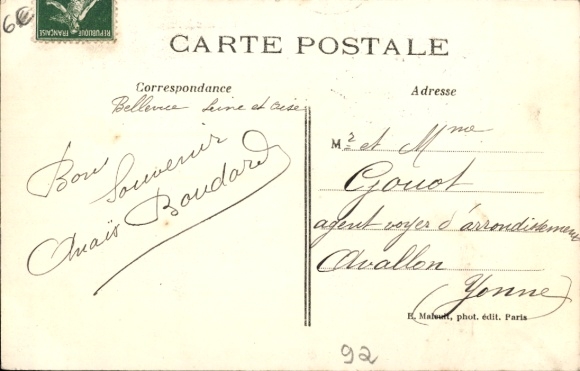 6€
REPUBLIQUE FRANÇAISE
CARTE POSTALE
Correspondance
Bellevue Seine et Oise
Bon
Souvenir
Anaïs Boudard
Adresse
Mr et Mme
Gouot
agent voyer d'arrondissement
Avallon
(Yonne)
E. Malcuit, phot. édit. Paris
92